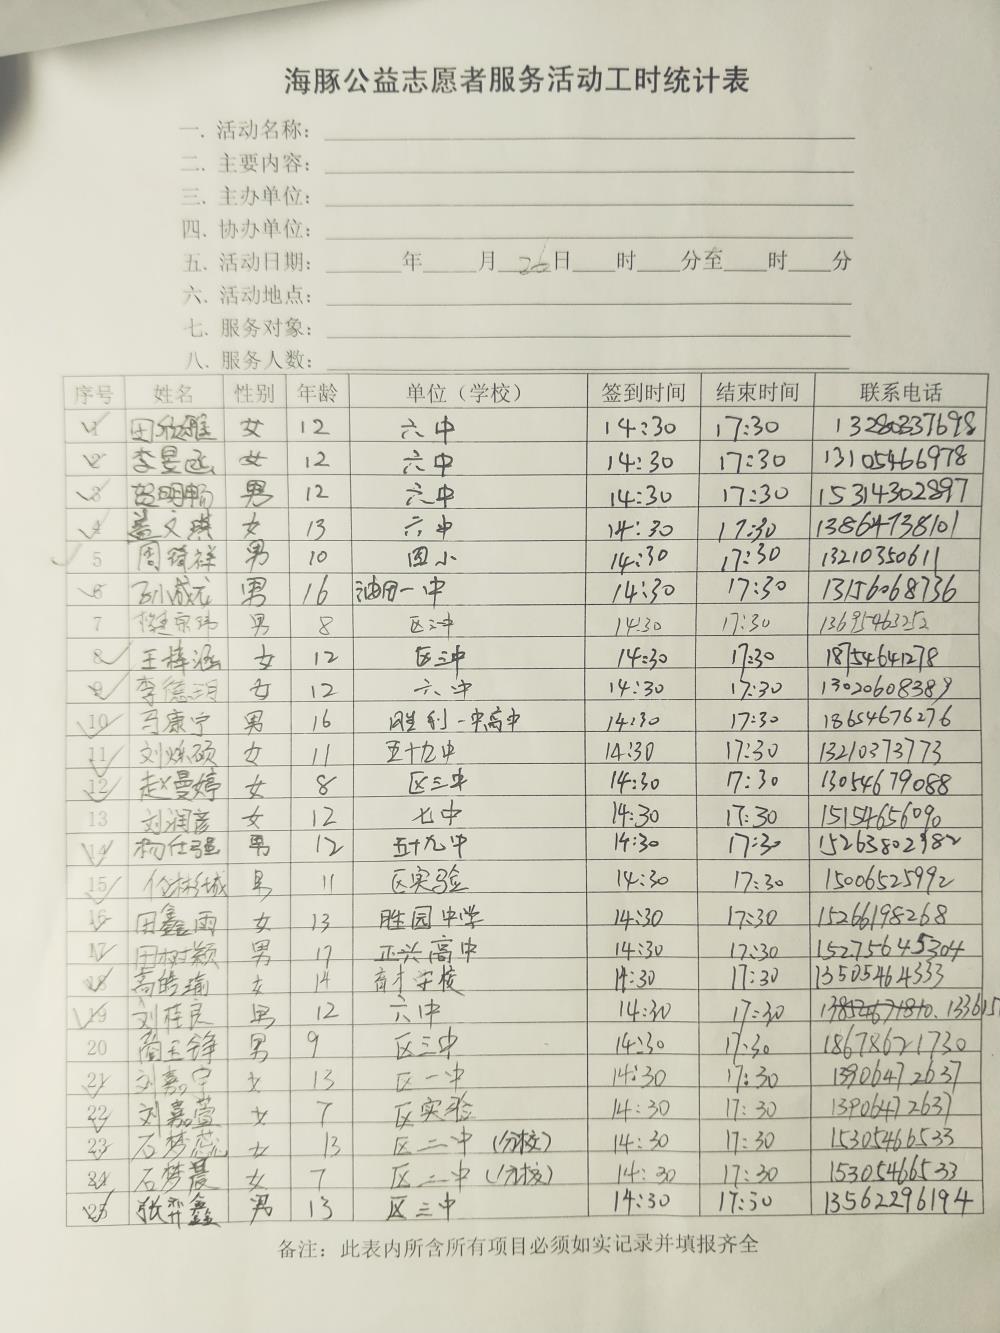 海豚公益志愿者服务活动工时统计表
一. 活动名称:
二. 主要内容:
三. 主办单位:
四. 协办单位:
五. 活动日期: 年 月 26 日 时 分至 时 分
六. 活动地点:
七. 服务对象:
八. 服务人数:
序号 姓名 性别 年龄 单位（学校） 签到时间 结束时间 联系电话
1 田欣雅 女 12 六中 14:30 17:30 13280337698
2 李昱函 女 12 六中 14:30 17:30 13105466978
3 明畅 男 12 六中 14:30 17:30 15314302897
4 盖文琪 女 13 六中 14:30 17:30 13864738101
5 周琦祥 男 10 四小 14:30 17:30 13210350611
6 孙成龙 男 16 油田一中 14:30 17:30 13156068736
7 男 8 区三中 14:30 17:30 13695463252
8 王梓涵 女 12 区三中 14:30 17:30 18754641278
9 李德 女 12 六中 14:30 17:30 13020608389
10 马康宁 男 16 胜利一中高中 14:30 17:30 18654676276
11 刘烁硕 女 11 五十九中 14:30 17:30 13210373773
12 赵曼婷 女 8 区三中 14:30 17:30 13054679088
13 刘润彦 女 12 七中 14:30 17:30 15154656090
14 杨仕强 男 12 五十九中 14:30 17:30 15263802982
15 城 男 11 区实验 14:30 17:30 15006525992
16 田鑫雨 女 13 胜园中学 14:30 17:30 15266198268
17 田树颖 男 17 正兴高中 14:30 17:30 15275645304
18 高皓瑜 女 14 育才学校 14:30 17:30 13505464333
19 刘桂良 男 12 六中 14:30 17:30
20 男 9 区三中 14:30 17:30 18678621730
21 刘嘉宁 女 13 区一中 14:30 17:30 13906472637
22 刘嘉萱 女 7 区实验 14:30 17:30 13906472637
23 石梦蕊 女 13 区二中（分校） 14:30 17:30 15305466533
24 石梦晨 女 7 区二中（分校） 14:30 17:30 15305466533
25 张羿鑫 男 13 区三中 14:30 17:30 13562296194
备注：此表内所含所有项目必须如实记录并填报齐全